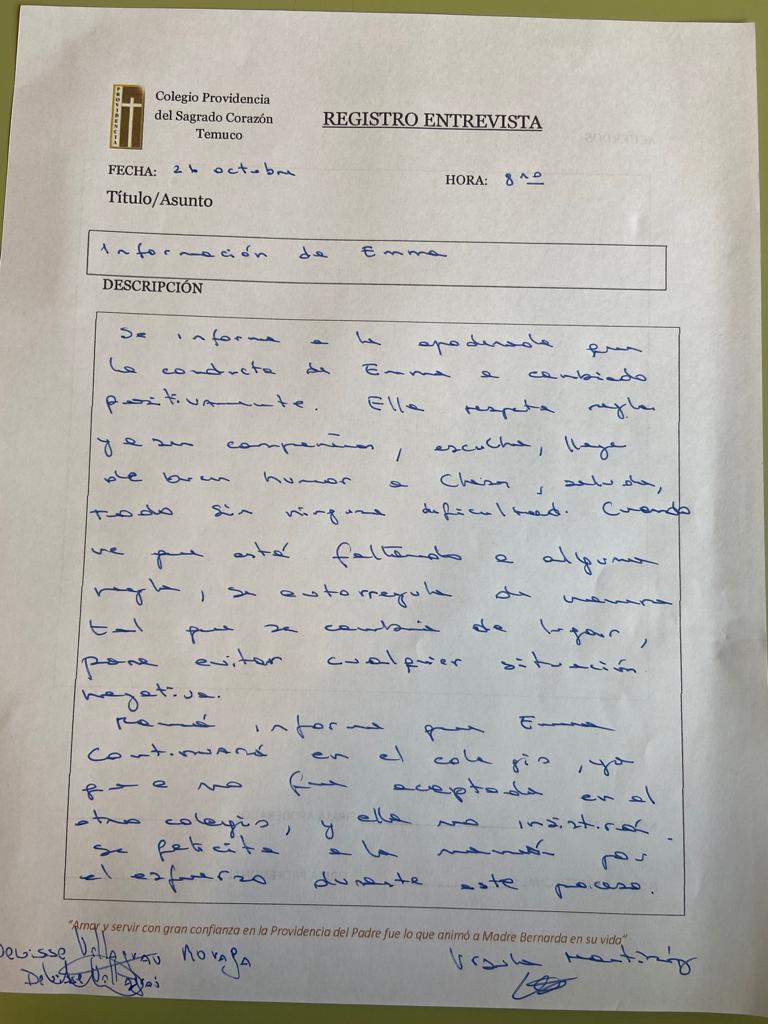 PROVIDENCIA
Colegio Providencia
del Sagrado Corazón
Temuco
REGISTRO ENTREVISTA
FECHA: 26 octubre
HORA: 8:00
Título/Asunto
Información de Emma
DESCRIPCIÓN
Se informa a la apoderada que
la conducta de Emma a cambiado
positivamente. Ella respeta reglas
y a sus compañeros, escucha, llega
de buen humor a clases, saluda,
todo sin ninguna dificultad. Cuando
ve que está faltando a alguna
regla, se autorregula de manera
tal que se cambia de lugar,
para evitar cualquier situación
negativa.
Mamá informa que Emma
continuará en el colegio, ya
que no fue aceptada en el
otro colegio, y ella no insistirá.
Se felicita a la mamá por
el esfuerzo durante este proceso.
"Amar y servir con gran confianza en la Providencia del Padre fue lo que animó a Madre Bernarda en su vida"
Denisse Villagran Moraga